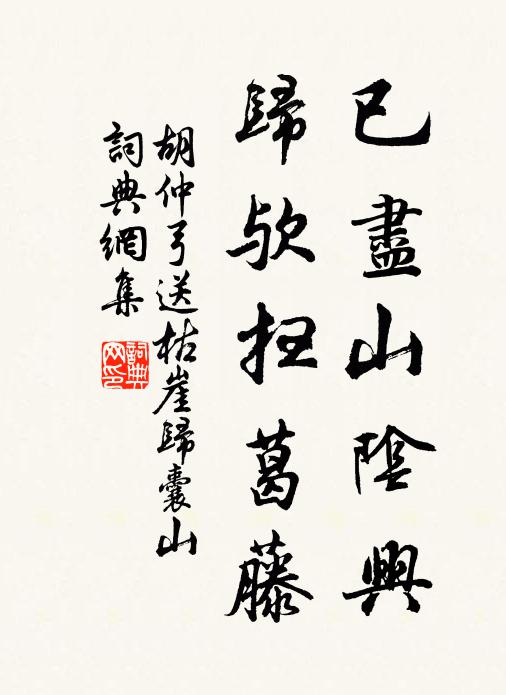 已盡山陰興
歸欤扫葛藤
胡仲弓送枯崖歸囊山
詞典網集
詞典网印